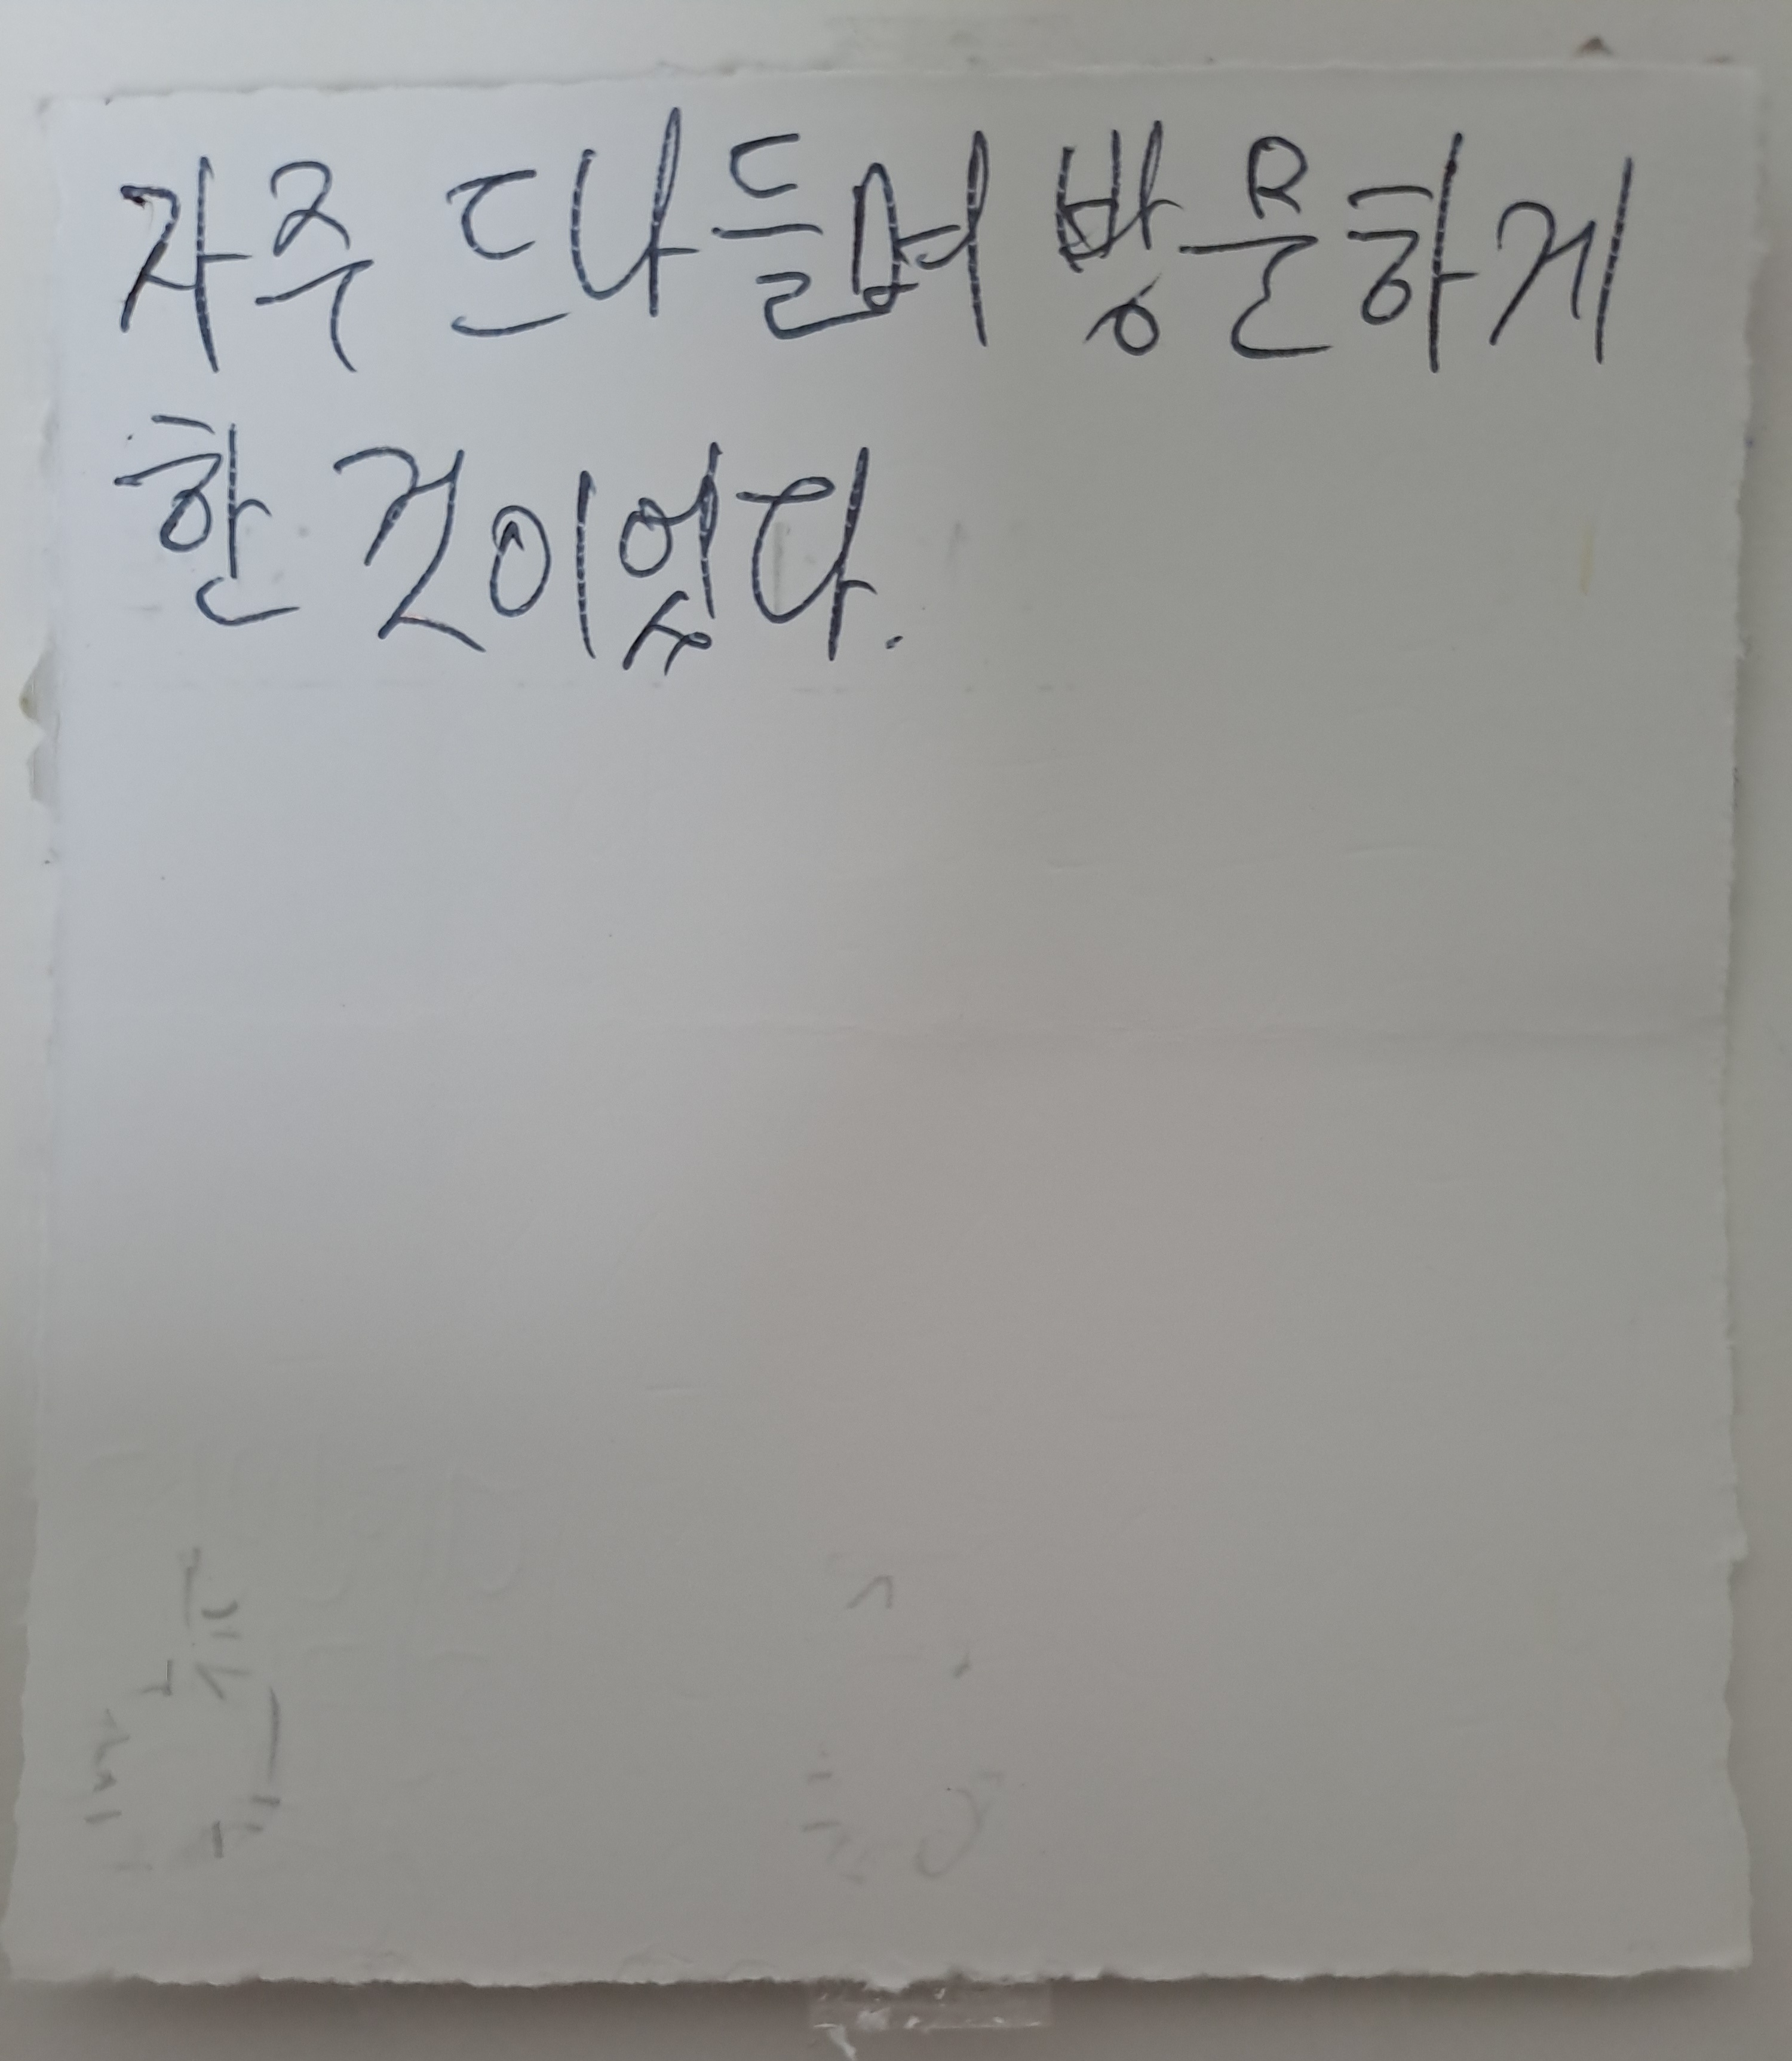 자주 드나들며 방문하게
한 것이었다.